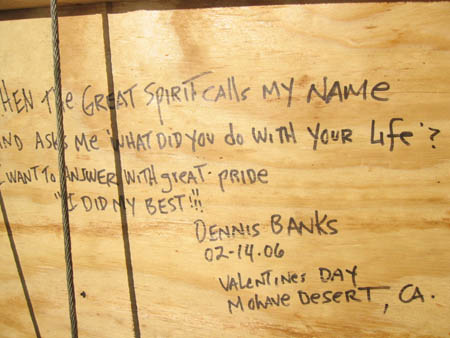 HEN the GREAT SPIRIT CALLS MY NAME
AND ASKS ME 'WHAT DID YOU do WITH YOUR Life'?
I WANT TO ANSWER WITH great PRIDE
"I DID MY BEST!!!
DENNIS BANKS
02-14.06
VALENTINES DAY
MOHAVE DESERT, CA.